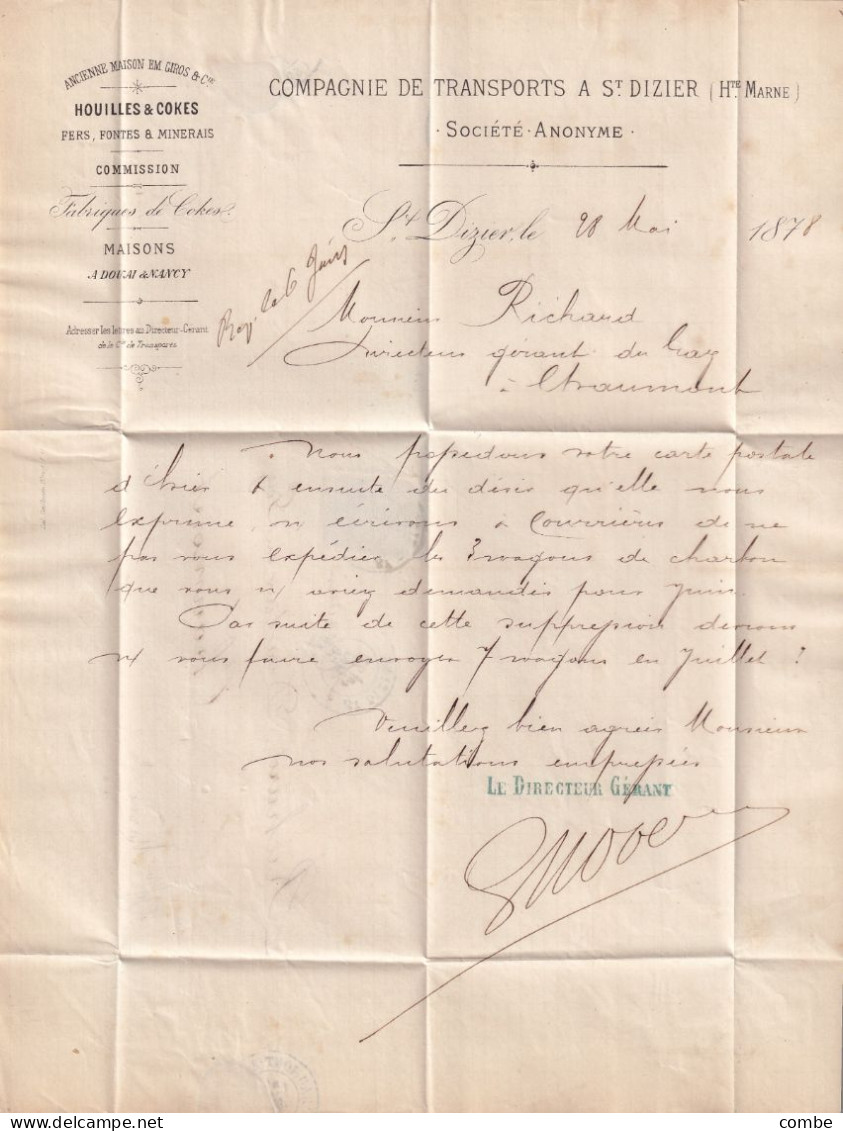 ANCIENNE MAISON EM. GIROS & Cie
HOUILLES & COKES
FERS, FONTES & MINERAIS
COMMISSION
Fabriques de Cokes.
MAISONS
A DOUAI & NANCY
Adresser les lettres au Directeur-Gérant
de la Cie de Transports
COMPAGNIE DE TRANSPORTS A ST DIZIER (HTE MARNE)
SOCIÉTÉ ANONYME
St Dizier, le 28 Mai 1878
Monsieur Richard
Directeur gérant du Gaz
à Chaumont
Nous possédons votre carte postale
d'hier & ensuite du désir qu'elle nous
exprime, n/ écrivons à Courrières de ne
pas vous expédier les 3 wagons de charbon
que vous n/ aviez demandés pour Juin.
Par suite de cette suppression devrons
n/ vous faire envoyer 7 wagons en Juillet ?
Veuillez bien agréer Monsieur
nos salutations empressées
LE DIRECTEUR GÉRANT
combe